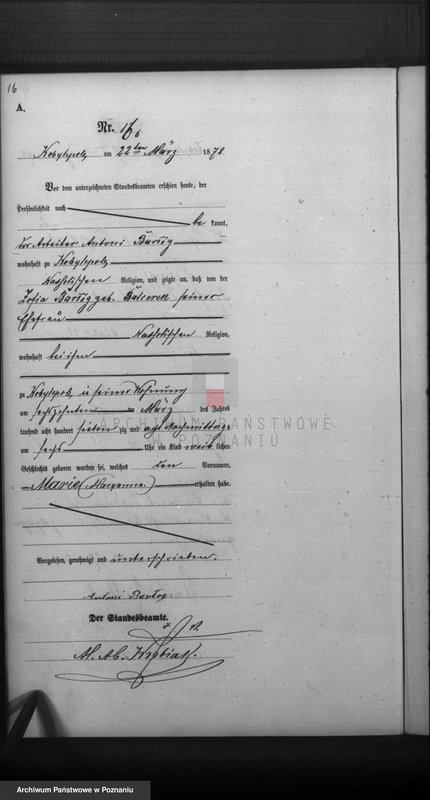 16
A.
Nr. 16
Kobylepole am 22ten März 1878
Vor dem unterzeichneten Standesbeamten erschien heute, der
Persönlichkeit nach
be kannt,
der Arbeiter Antoni
wohnhaft zu Kobylepole
Katholischen Religion, und zeigte an, daß von der
Zofia geb. seiner
Ehefrau
Katholischen Religion,
wohnhaft bei ihm
zu Kobylepole in seiner Wohnung
am sechszehnten März des Jahres
tausend acht hundert sieben zig und acht Nachmittags
um sechs Uhr ein Kind weib lichen
Geschlechts geboren worden sei, welches den Vornamen,
Marie (Maryanna) erhalten habe.
ARCHIWUM PAŃSTWOWE
W POZNANIU
Vorgelesen, genehmigt und unterschrieben.
Antoni
Der Standesbeamte.
Archiwum Państwowe w Poznaniu